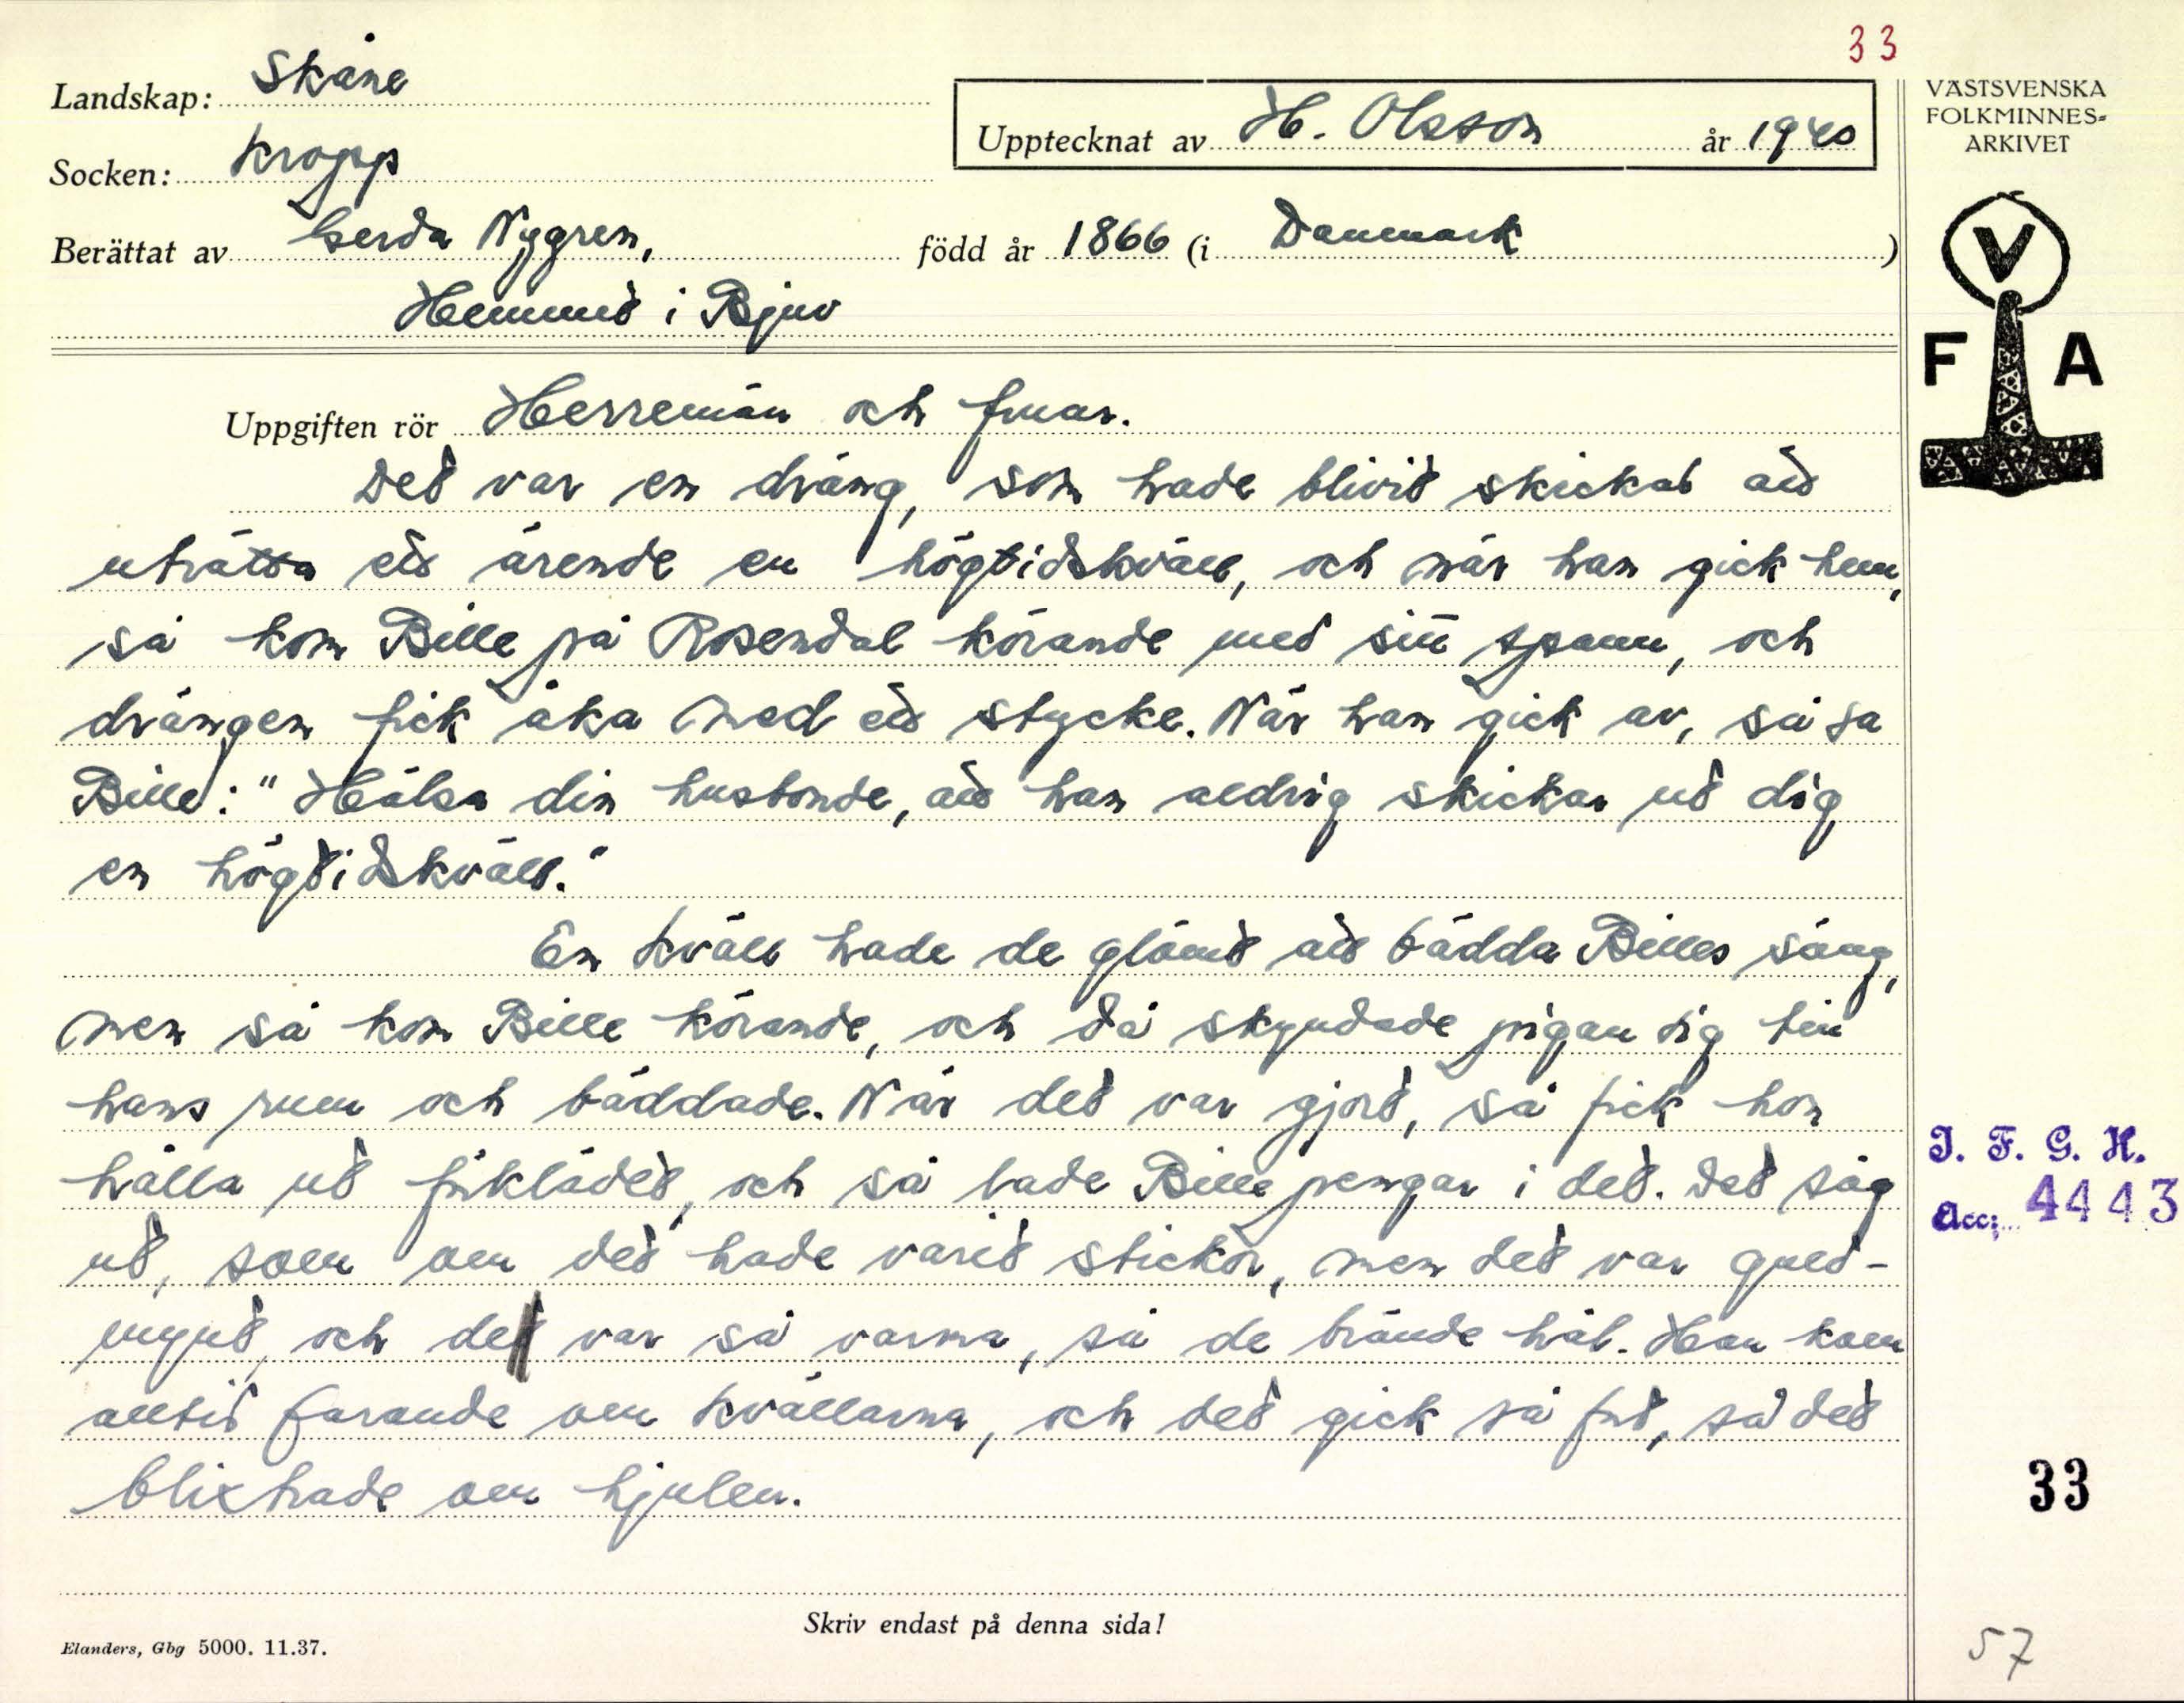 33
Landskap: Skåne
Socken: Kropp
Upptecknat av H. Olsson år 1940
VÄSTSVENSKA
FOLKMINNES-
ARKIVET
Berättat av Gerda Nygren, född år 1866 (i Danmark )
Hemmet i Bjuv
V
F A
Uppgiften rör Herremän och fruar.
Det var en dräng, som hade blivit skickat att
uträtta ett ärende en högtidskväll, och när han gick hem,
så kom Bille på Rosendal körande med sitt spann, och
drängen fick åka med ett stycke. När han gick av, så sa
Bille: "Hälsa din husbonde, att han aldrig skickar ut dig
en högtidskväll."
En kväll hade de glömt att bädda Billes säng,
men så kom Bille körande, och då skyndade pigan sig till
hans rum och bäddade. När det var gjort, så fick hon
hålla ut förklädet, och så lade Bille pengar i det. Det såg
ut, som om det hade varit stickor, men det var guld-
mynt, och de var så varma, så de brände hål. Han kom
alltid farande om kvällarna, och det gick så fort, så det
blixtrade om hjulen.
I. F. G. H.
Acc: 4443
33
Skriv endast på denna sida!
Elanders, Gbg 5000. 11.37.
57